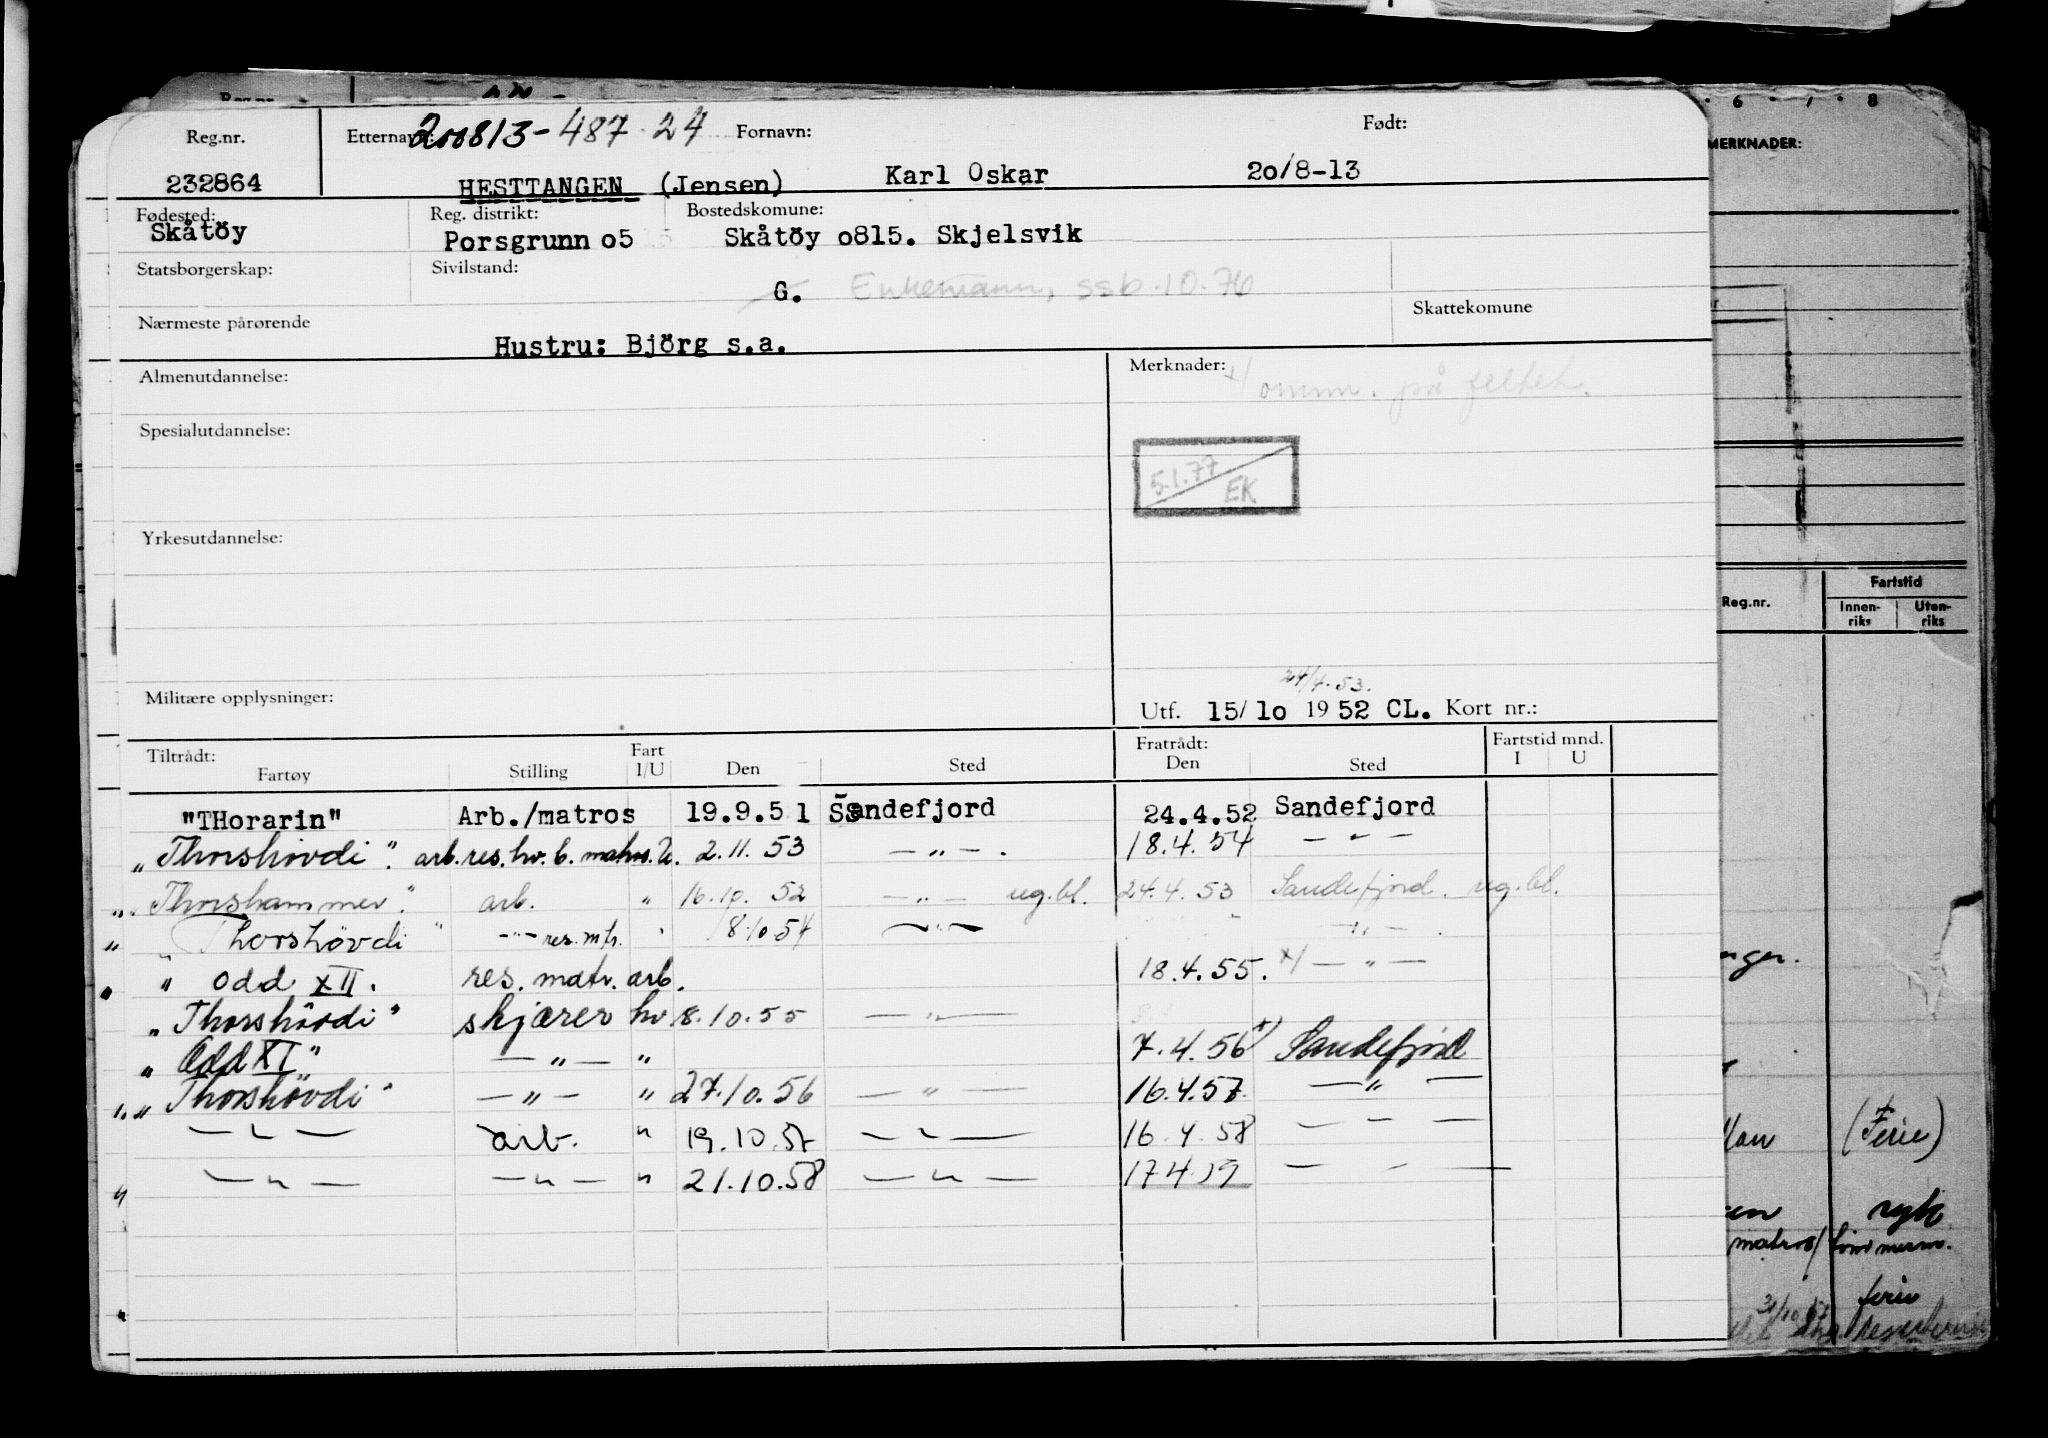 Reg.nr. Etternavn: 200813-487 24 Fornavn: Født:
232864 HESTTANGEN (Jensen) Karl Oskar 20/8-13
Fødested: Reg. distrikt: Bostedskomune:
Skåtöy Porsgrunn o5 Skåtöy o815. Skjelsvik
Statsborgerskap: Sivilstand:
G. Enkemann, ssb.10.76
Skattekomune
Nærmeste pårørende
Hustru: Björg s.a.
Almenutdannelse: Merknader:
x/ omm. på feltet.
Spesialutdannelse:
5.1.77/EK
Yrkesutdannelse:
24/4.53.
Militære opplysninger: Utf. 15/ 1o 19 52 CL. Kort nr.:
Tiltrådt: Fart Fratrådt: Fartstid mnd.
Fartøy Stilling I/U Den Sted Den Sted I U
"THorarin" Arb./matros 19.9.51 Sandefjord 24.4.52 Sandefjord
"Thorshövdi". arb.res.hv.b. matr. U. 2.11.53 — " — . 18.4.54 — " —
"Thorshammer". arb. " 16.10.52 — " — reg.bl. 24.4.53 Sandefjord. reg.bl.
" Thorshövdi " — " — res.mtr. " 18.10.54 — " — — " — .
" Odd XII. res. matr. arb. 18.4.55. x/ — " —
"Thorshövdi" skjærer hv 8.10.55 — " —
" Odd XI " — " — " 7.4.56 x/ Sandefjord
" Thorshövdi " — " — " 27.10.56 — " — 16.4.57. — " —
— " — arb. " 19.10.57 — " — 16.4.58 — " —
— " — — " — " 21.10.58 — " — 17 4 59 — " —
MERKNADER:
Reg.nr. Fartstid
Innen-riks Uten-riks
(Ferie)
matros/
ferie